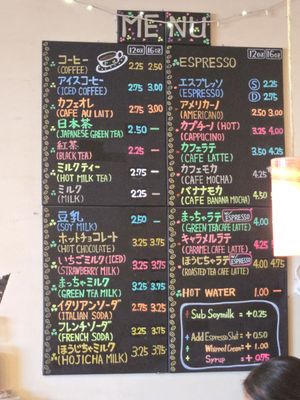 MENU
12oz 16oz
コーヒー
(COFFEE) 2.25 2.50
アイスコーヒー
(ICED COFFEE) 2.75 3.00
カフェオレ
(CAFE AU LAIT) 2.75 3.00
日本茶
(JAPANESE GREEN TEA) 2.50 —
紅茶
(BLACK TEA) 2.25 —
ミルクティー
(HOT MILK TEA) 2.75 —
ミルク
(MILK) 2.25 —
豆乳
(SOY MILK) 2.50 —
ホットチョコレート
(HOT CHOCOLATE) 3.25 3.75
いちごミルク(ICED)
(STRAWBERRY MILK) 3.25 3.75
まっちゃミルク
(GREEN TEA MILK) 3.25 3.75
イタリアンソーダ
(ITALIAN SODA) 2.75 3.25
フレンチソーダ
(FRENCH SODA) 3.25 3.75
ほうじちゃミルク
(HOJICHA MILK) 3.25 3.75
12oz 16oz
ESPRESSO
エスプレッソ Ⓢ 2.25
(ESPRESSO) Ⓓ 2.75
アメリカーノ
(AMERICANO) 2.50 3.00
カプチーノ (HOT)
(CAPPUCINO) 3.25 4.00
カフェラテ
(CAFE LATTE) 3.50 4.25
カフェモカ
(CAFE MOCHA)
バナナモカ
(CAFE BANANA MOCHA) 4.50
まっちゃラテ ESPRESSO
(GREEN TEA CAFE LATTE)
キャラメルラテ
(CARAMEL CAFE LATTE) 4.25
ほうじちゃラテ ESPRESSO
(ROASTED TEA CAFE LATTE) 4.00 4.75
HOT WATER 1.00 —
Sub Soymilk = +0.25
Add Espresso Shot = +0.50
Whipped Cream = 1.00
Syrup = +0.75